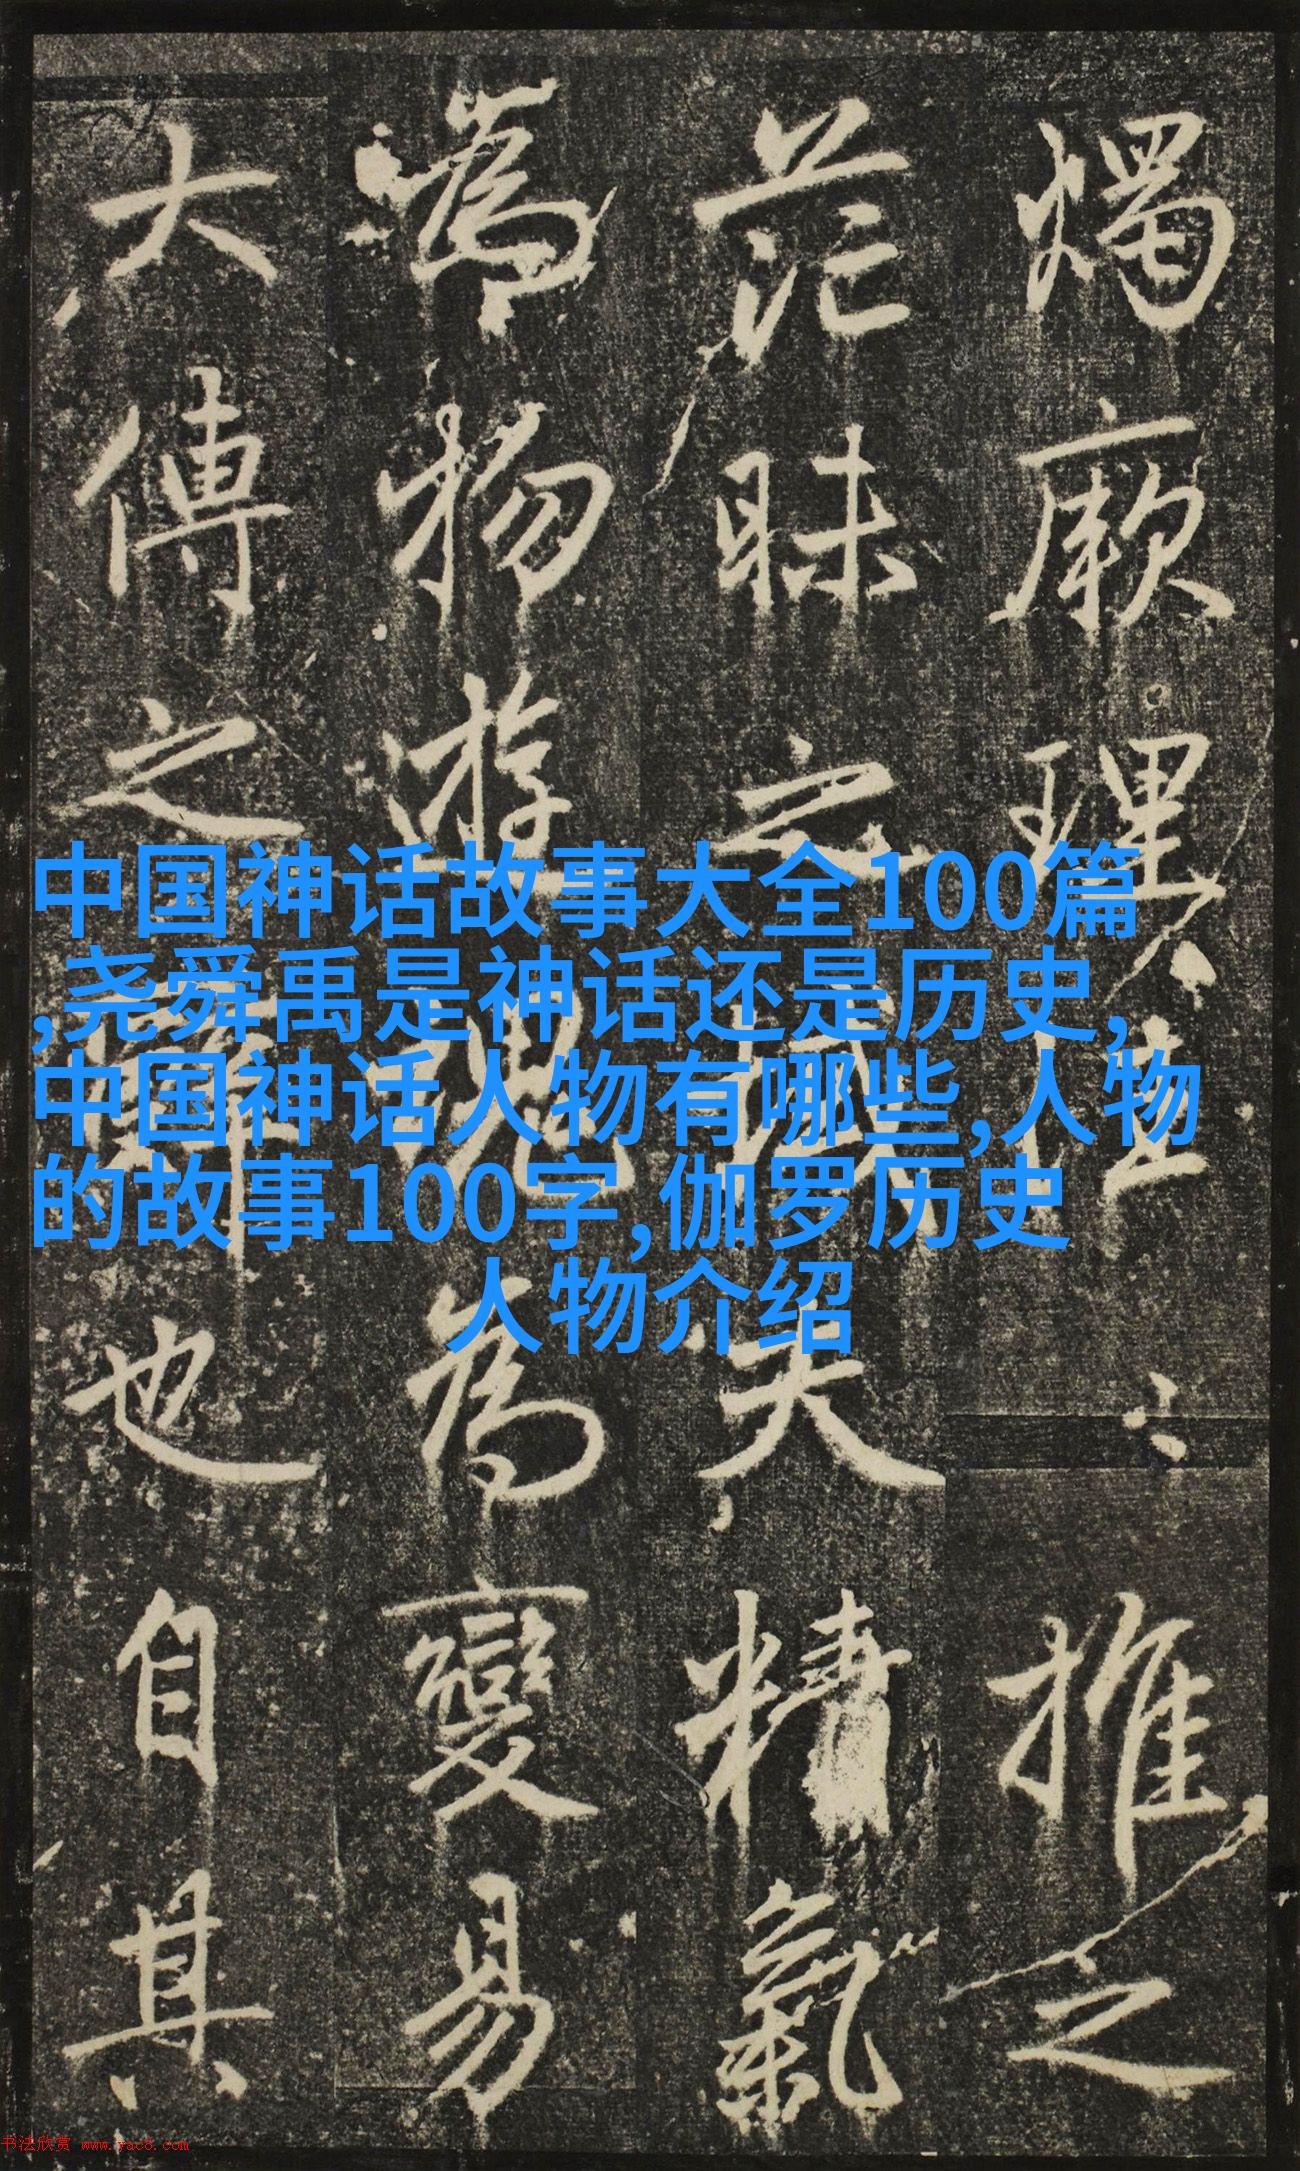 燭厥理推之
茫昧之夫精氣
為物遊魂為變易
大傳之辭也自其
中国神话故事大全100篇
,尧舜禹是神话还是历史,
中国神话人物有哪些,人物
的故事100字,伽罗历史
人物介绍
书法欣赏 www.yac8.com